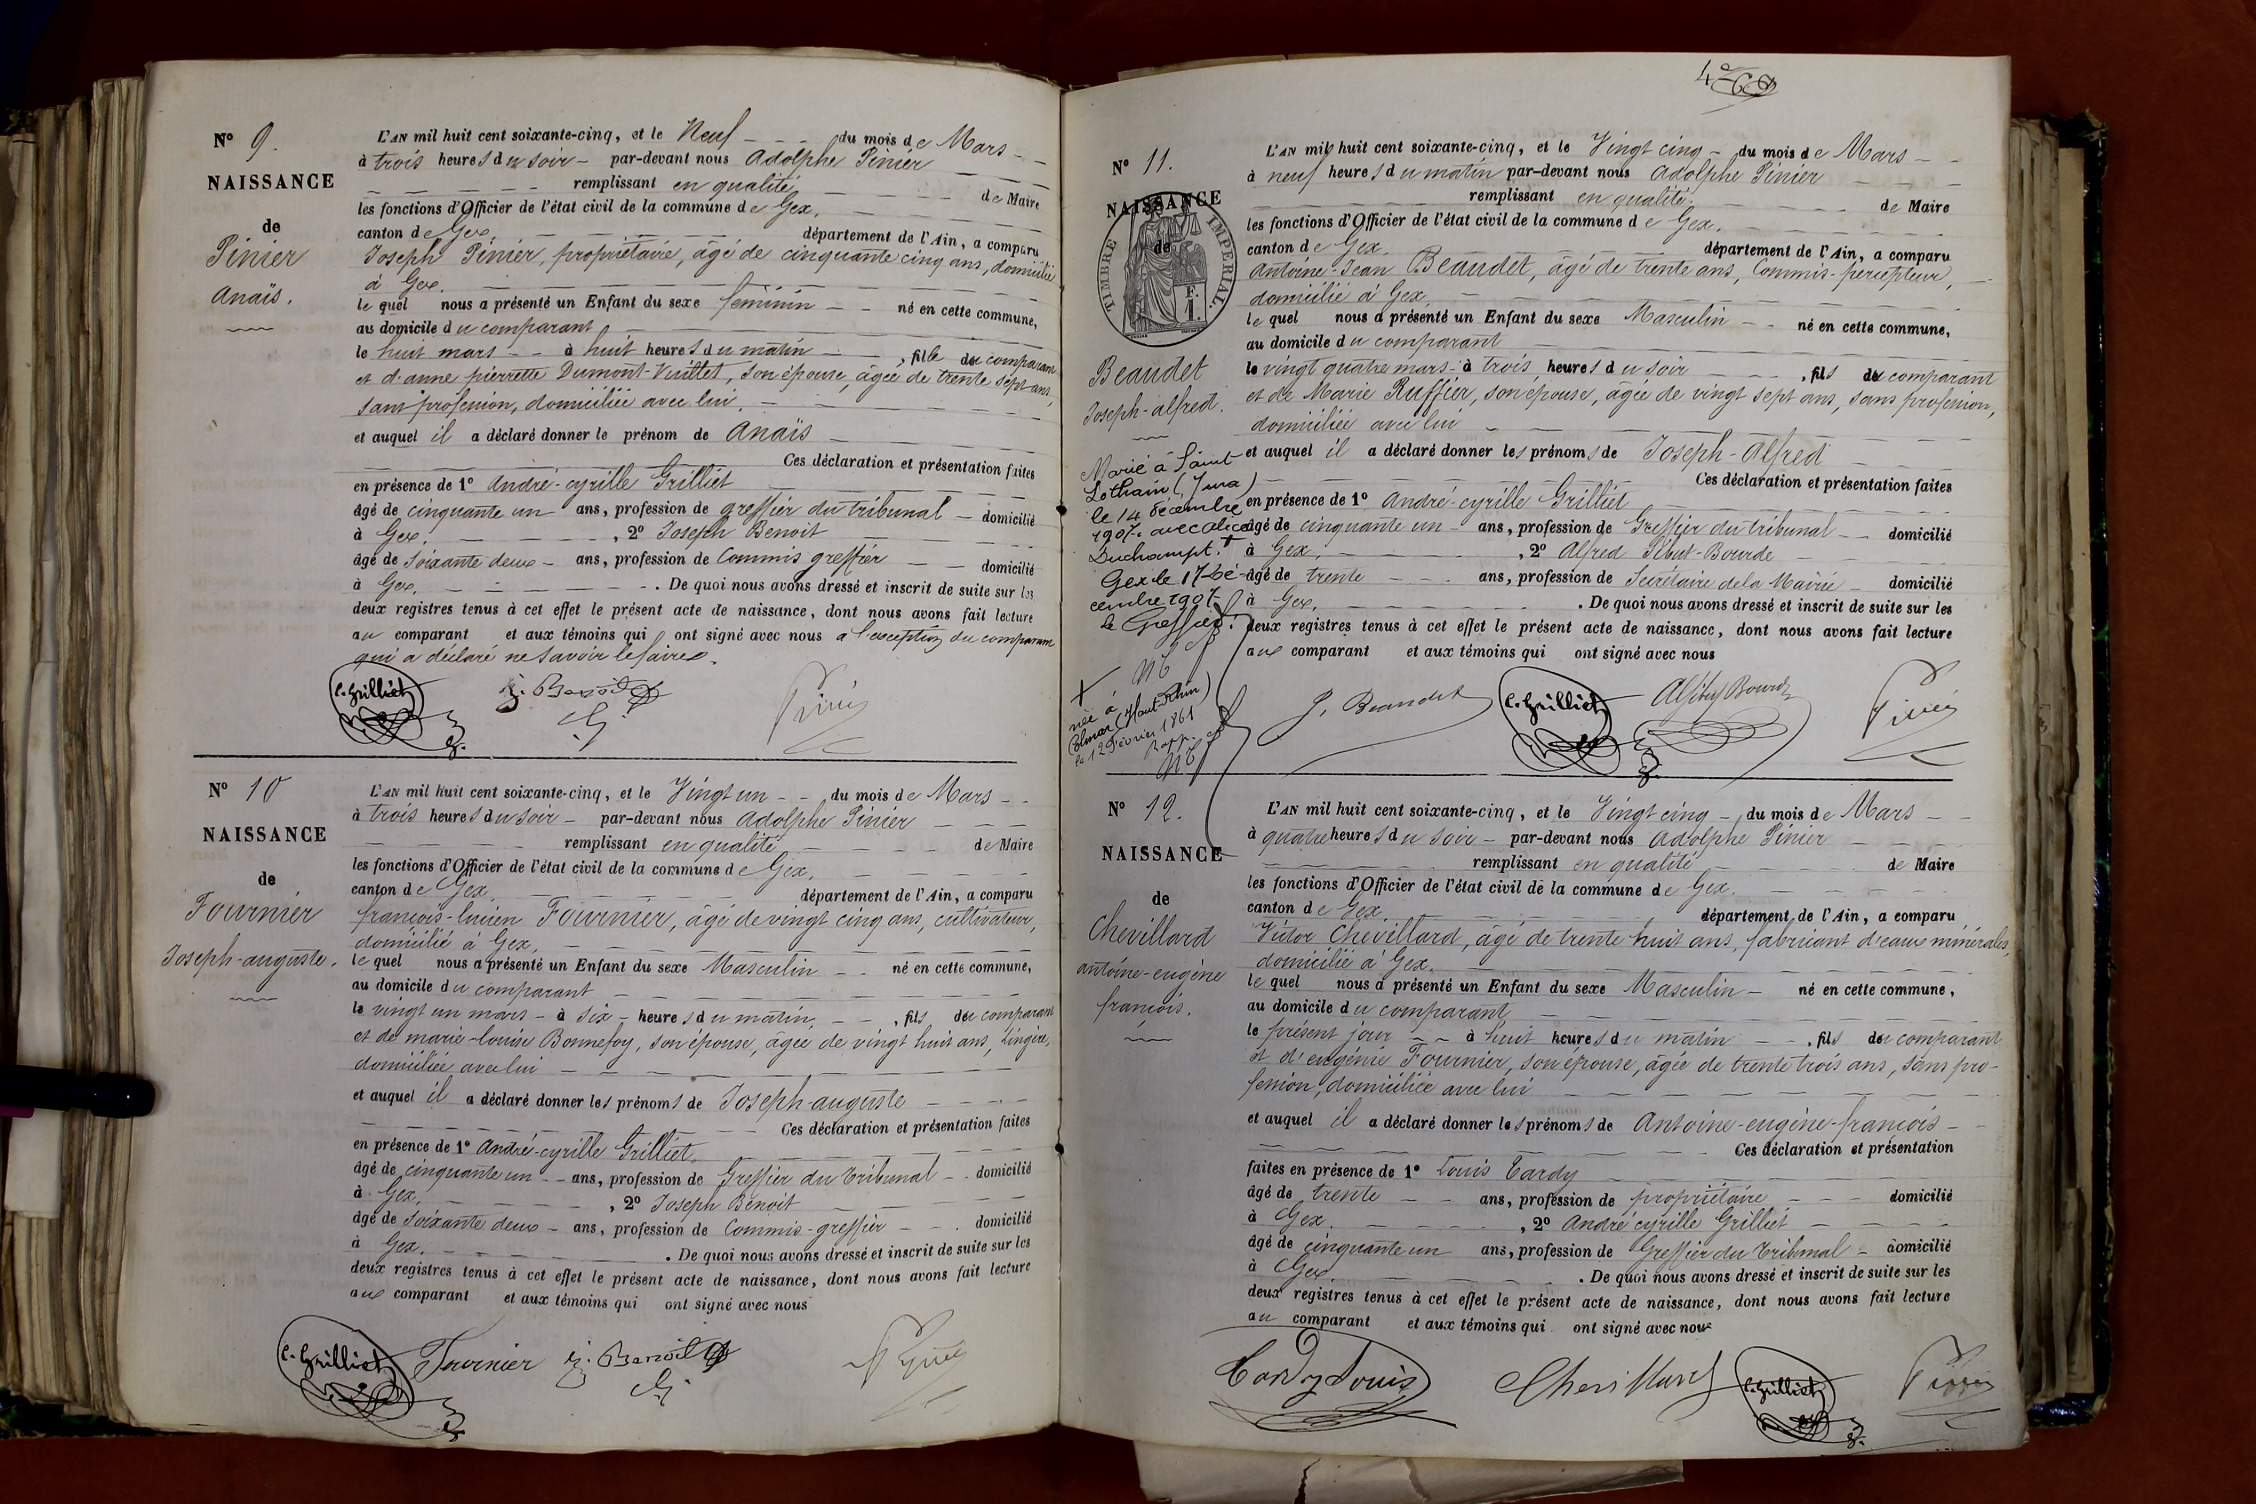 N° 9.
NAISSANCE
de
Pinier
Anaïs.
L'AN mil huit cent soixante-cinq, et le Neuf du mois de Mars
à trois heures du soir par-devant nous Adolphe Pinier
remplissant en qualité de Maire
les fonctions d'Officier de l'état civil de la commune de Gex.
canton de Gex. département de l'Ain, a comparu
Joseph Pinier, propriétaire, âgé de cinquante cinq ans, domicilié
à Gex.
le quel nous a présenté un Enfant du sexe féminin né en cette commune,
au domicile du comparant
le huit mars à huit heures du matin, fille du comparant
et d'anne pierrette Dumont-Vuillet, son épouse, âgée de trente sept ans,
sans profession, domiciliée avec lui.
et auquel il a déclaré donner le prénom de Anaïs
Ces déclaration et présentation faites
en présence de 1° André-cyrille Grilliet
âgé de cinquante un ans, profession de greffier du tribunal domicilié
à Gex. , 2° Joseph Benoit
âgé de soixante deux ans, profession de Commis greffier domicilié
à Gex. . De quoi nous avons dressé et inscrit de suite sur les
deux registres tenus à cet effet le présent acte de naissance, dont nous avons fait lecture
au comparant et aux témoins qui ont signé avec nous à l'exception du comparant
qui a déclaré ne savoir le faire.
C. Grilliet J. Benoit Pinier
N° 10
NAISSANCE
de
Fournier
Joseph-auguste.
L'AN mil huit cent soixante-cinq, et le Vingt un du mois de Mars
à trois heures du soir par-devant nous Adolphe Pinier
remplissant en qualité de Maire
les fonctions d'Officier de l'état civil de la commune de Gex.
canton de Gex. département de l'Ain, a comparu
françois-lucien Fournier, âgé de vingt cinq ans, cultivateur,
domicilié à Gex.
le quel nous a présenté un Enfant du sexe Masculin né en cette commune,
au domicile du comparant
le vingt un mars à six heures du matin, fils du comparant
et de marie-louise Bonnefoy, son épouse, âgée de vingt huit ans, Lingère,
domiciliée avec lui
et auquel il a déclaré donner les prénoms de Joseph-auguste
Ces déclaration et présentation faites
en présence de 1° André-cyrille Grilliet.
âgé de cinquante un ans, profession de Greffier du tribunal domicilié
à Gex. , 2° Joseph Benoit
âgé de soixante deux ans, profession de Commis-greffier domicilié
à Gex. . De quoi nous avons dressé et inscrit de suite sur les
deux registres tenus à cet effet le présent acte de naissance, dont nous avons fait lecture
aux comparant et aux témoins qui ont signé avec nous
C. Grilliet Fournier J. Benoit Pinier
N° 11.
NAISSANCE
de
TIMBRE IMPERIAL.
F.
1.
Beaudet
Joseph-alfred.
Marié à Saint
Lothain (Jura)
le 14 décembre
1907 avec Alice
Duchampt. +
Gex le 17 Dé-
cembre 1907
le Greffier.
+
née à
Colmar (Haut Rhin)
le 12 Février 1861
L'AN mil huit cent soixante-cinq, et le Vingt cinq du mois de Mars
à neuf heures du matin par-devant nous Adolphe Pinier
remplissant en qualité de Maire
les fonctions d'Officier de l'état civil de la commune de Gex.
canton de Gex. département de l'Ain, a comparu
Antoine-Jean Beaudet, âgé de trente ans, Commis-percepteur,
domicilié à Gex.
le quel nous a présenté un Enfant du sexe Masculin né en cette commune,
au domicile du comparant
le vingt quatre mars à trois heures du soir, fils du comparant
et de Marie Ruffier, son épouse, âgée de vingt sept ans, sans profession,
domiciliée avec lui
et auquel il a déclaré donner les prénoms de Joseph-Alfred
Ces déclaration et présentation faites
en présence de 1° André-cyrille Grilliet
âgé de cinquante un ans, profession de Greffier du tribunal domicilié
à Gex , 2° Alfred Sibut-Bourde
âgé de trente ans, profession de Secrétaire de la Mairie domicilié
à Gex. . De quoi nous avons dressé et inscrit de suite sur les
deux registres tenus à cet effet le présent acte de naissance, dont nous avons fait lecture
aux comparant et aux témoins qui ont signé avec nous
J. Beaudet C. Grilliet A Sibut Bourde Pinier
N° 12.
NAISSANCE
de
Chevillard
antoine-eugène
françois.
L'AN mil huit cent soixante-cinq, et le Vingt cinq du mois de Mars
à quatre heures du soir par-devant nous Adolphe Pinier
remplissant en qualité de Maire
les fonctions d'Officier de l'état civil de la commune de Gex.
canton de Gex département de l'Ain, a comparu
Victor Chevillard, âgé de trente huit ans, fabricant d'eaux minérales,
domicilié à Gex.
le quel nous a présenté un Enfant du sexe Masculin né en cette commune,
au domicile du comparant
le présent jour à huit heures du matin, fils du comparant
et d'eugénie Fournier, son épouse, âgée de trente trois ans, sans pro-
fession, domiciliée avec lui
et auquel il a déclaré donner les prénoms de Antoine-eugène-françois
Ces déclaration et présentation
faites en présence de 1° Louis Tardy
âgé de trente ans, profession de propriétaire domicilié
à Gex. , 2° André cyrille Grilliet
âgé de cinquante un ans, profession de Greffier du Tribunal domicilié
à Gex . De quoi nous avons dressé et inscrit de suite sur les
deux registres tenus à cet effet le présent acte de naissance, dont nous avons fait lecture
au comparant et aux témoins qui ont signé avec nous
Tardy Louis Chevillard C. Grilliet Pinier